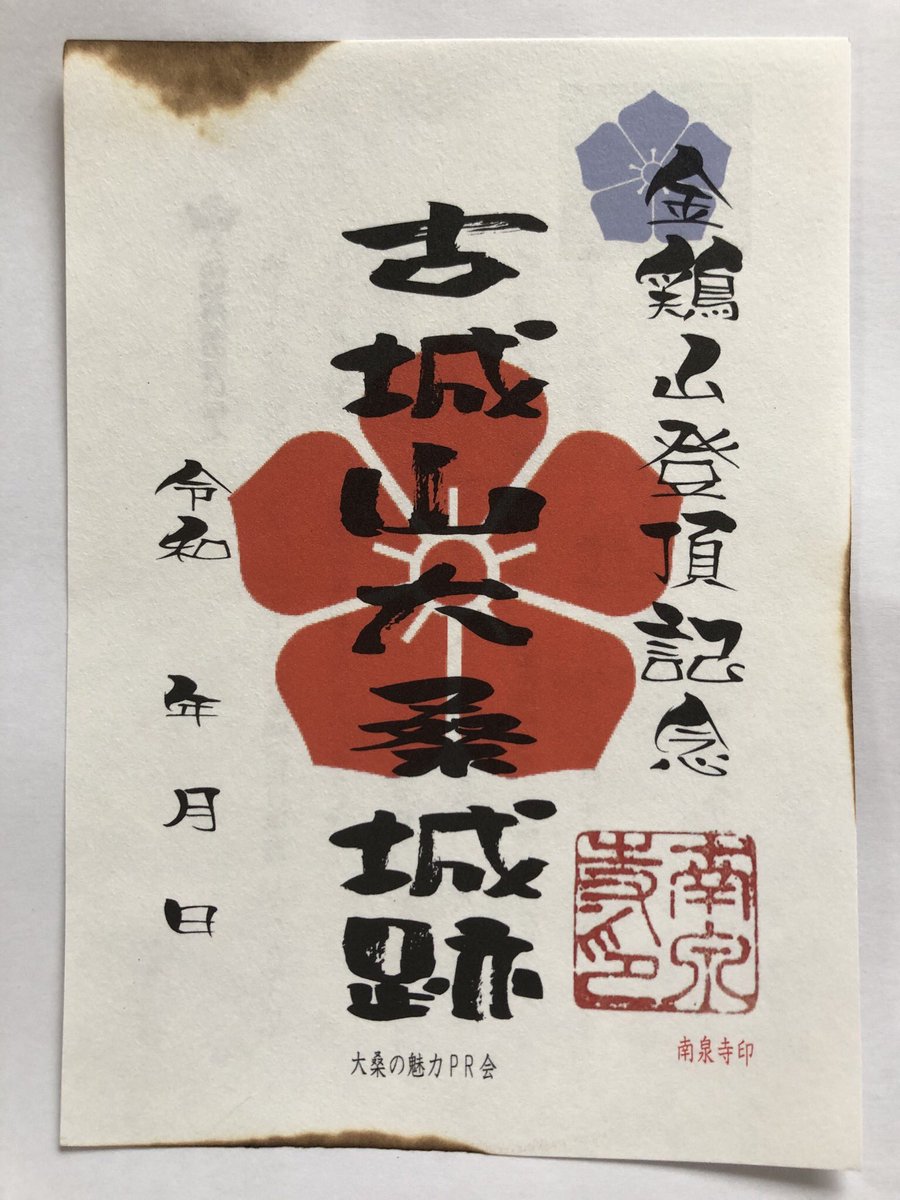 金鶏山登頂記念
古城山大桑城跡
令和　年　月　日
南泉寺印
南泉寺印
大桑の魅力PR会